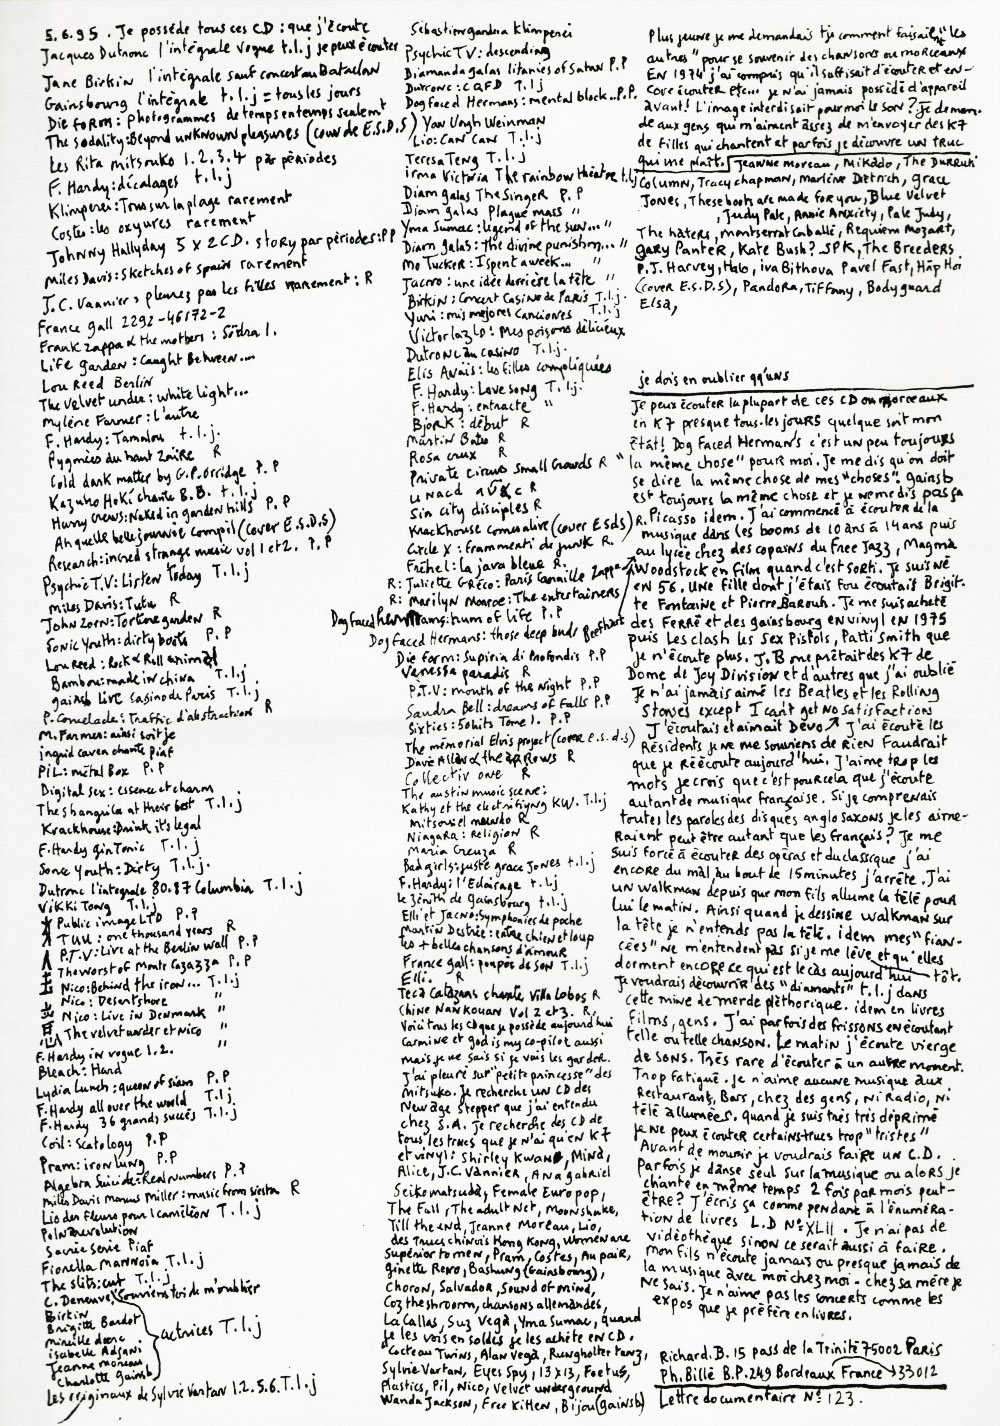 5.6.95. Je possède tous ces CD : que j'écoute
Jacques Dutronc l'intégrale vogue t.l.j je peux écouter
Jane Birkin l'intégrale sauf concert au Bataclan
Gainsbourg l'intégrale t.l.j = tous les jours
Die form : photogrammes de temps en temps seulement
The sodality : Beyond unknown pleasures (cow de E.S.D.S)
Les Rita mitsouko 1.2.3.4 par périodes
F. Hardy : décalages t.l.j
Klimperei : Tous sur la plage rarement
Costes : les oxyures rarement
Johnny Hallyday 5 x 2 CD. story par périodes : P.P
Miles Davis : sketches of spain rarement
J.C. Vannier : pleurez pas les filles rarement : R
France gall 2292-46172-2
Frank zappa & the mothers : Södra 1.
Life garden : Caught Between...
Lou Reed Berlin
The velvet under : white light...
Mylène Farmer : l'autre
F. Hardy : Tamalou t.l.j.
Pygmées du haut zaïre R
Cold dark matter by G.P. Orridge P.P
Kazuko Hoki chante B.B. t.l.j
Harry Crews : Naked in garden hills P.P
Ah quelle belle journée compil (cover E.S.D.S)
Research : incred strange music vol 1 et 2. P.P
Psychic T.V : Listen Today T.l.j
Miles Davis : Tutu R
John Zorn : Torture garden R
Sonic Youth : dirty boots P.P
Lou Reed : Rock & Roll animal
Bambou : made in china T.l.j.
gainsb live casino de Paris T.l.j
P. Comelade : Traffic d'abstraction R
M. Farmer : ainsi soit je
ingrid caven chante Piaf
PiL : métal Box P.P
Digital sex : essence et charm
The shangrila at their best T.l.j
Krackhouse : Drink it's legal
F. Hardy gin Tonic T.l.j
Sonic Youth : Dirty T.l.j.
Dutronc l'intégrale 80.87 Columbia T.l.j
Vikki Tong T.l.j
Public image LTD P.P
T U U : one thousand years R
P.T.V : Live at the Berlin wall P.P
The worst of Monte Cazazza P.P
Nico : Behind the iron... T.l.j
Nico : Desertshore "
Nico : Live in Denmark "
The velvet under et nico "
F. Hardy in vogue 1.2. "
Bleach : Hard
Lydia Lunch : queen of siam P.P
F. Hardy all over the world T.l.j
F. Hardy 36 grands succès T.l.j
Coil : Scatology P.P
Pram : iron lung P.P
Algebra Suicide : Real numbers P.P
miles Davis Marcus Miller : music from siesta R
Lio des fleurs pour 1 caméléon T.l.j
Polnarevolution
Sacrée série Piaf
Fiorella Mannoia T.l.j
The slits : cut T.l.j
C. Deneuve, Souviens toi de m'oublier
Birkin
Brigitte Bardot
mireille darc
isabelle Adjani
Jeanne moreau
Charlotte gainsb
actrices T.l.j
Les originaux de Sylvie Vartan 1.2.5.6. T.l.j
Sébastien gandra Klimperei
Psychic TV : descending
Diamanda galas litanies of satan P.P
Dutronc : C Q F D T.l.j
Dog faced Hermans : mental block.. P.P.
Yan Vogh Weinman
Lio : Can Can T.l.j
Teresa Teng T.l.j
irma Victoria The rainbow theatre t.l.j
Diam galas The Singer P.P
Diam galas Plague mass "
Yma Sumac : legend of the sun... "
Diam galas : the divine punishm... "
Mo Tucker : I spent a week... "
Jacno : une idée derrière la tête "
Birkin : Concert Casino de Paris T.l.j.
Yuri : mis mejores canciones T.l.j
Victor lazlo : mes poisons délicieux
Dutronc au casino T.l.j.
Elis Anaïs : les filles compliquées
F. Hardy : Love song T.l.j.
F. Hardy : entracte "
Bjork : début R
Martin Bates R
Rosa crux R
Private circus small crowds R
U Nacd R
Sin city disciples R
Krackhouse comealive (cover Esds) R.
Circle X : frammenti de junk R.
Fréhel : la java bleue R.
R : Juliette Gréco : Paris Canaille Zappa
R : Marilyn Monroe : The entertainers
Dog Faced Hermans : hum of life P.P
Dog Faced Hermans : those deep buds Beefheart
Die form : Supiria di Profondis P.P
Vanessa paradis R
P.T.V : mouth of the Night P.P
Sandra Bell : dreams of falls P.P
Sixties : 50 hits Tome 1. P.P
The mémorial Elvis project (cover e.s.d.s)
Davie Allan & the arrows R
Collectiv one R
The austin music scene :
Kathy et the electrifiyng KW. T.l.j
mitsouiel mundo R
Niagara : Religion R
Maria Creuza R
Bad girls : juste grace Jones t.l.j
F. Hardy : l'Eclairage t.l.j
le zénith de Gainsbourg t.l.j
Elli et Jacno : Symphonies de poche
Martin Destrée : entre chien et loup
les + belles chansons d'amour
France gall : poupée de son T.l.j
Elli. R
Teca Calazans chante Villa Lobos R
Chine Nankouan Vol 2 et 3. R.
Voici tous les CD que je possède aujourd'hui
Carmine et god is my co-pilot aussi
mais je ne sais si je vais les garder.
J'ai pleuré sur "petite princesse" des
mitsuko. Je recherche un CD des
New age stepper que j'ai entendu
chez S.A. Je recherche des CD de
tous les trucs que je n'ai qu'en K7
et vinyl : Shirley Kwan, Mina,
Alice, J.C. Vannier, Ana gabriel
Seiko matsuda, Female Euro pop,
The Fall, The adult Net, Moonshake,
Till the end, Jeanne Moreau, Lio,
des Trucs chinois Hong Kong, Women are
supérior to men, Pram, Costes, Au pair,
Ginette Reno, Bashung (Gainsbourg),
Choron, Salvador, Sound of mind,
Coz the shroom, chansons allemandes,
La Callas, Suz Vega, Yma Sumac, quand
je les vois en soldes je les achète en CD.
Cocteau Twins, Alan Vega, Rungholter tanz,
Sylvie Vartan, Eyes Spy, 13 x 13, Foetus,
Plastics, Pil, Nico, Velvet underground
Wanda Jackson, Free Kitten, Bijou (gainsb)
Plus jeune je me demandais tjs comment faisaient "les
autres" pour se souvenir des chansons ou morceaux
En 1974 j'ai compris qu'il suffisait d'écouter et en-
core écouter etc... je n'ai jamais possédé d'appareil
avant! L'image interdisait pour moi le son? Je deman-
de aux gens qui m'aiment assez de m'envoyer des K7
de filles qui chantent et parfois je découvre un truc
qui me plaît. Jeanne Moreau, Mikado, The Durruti
Column, Tracy chapman, Marlène Dietrich, Grace
Jones, These boots are made for you, Blue Velvet
, Judy Pale, Annie Anxiety, Pale Judy,
The haters, montserrat Caballé, Requiem Mozart,
gary Panter, Kate Bush? SPK, The Breeders
P.J. Harvey, Halo, iva Bithova Pavel Fast, Hap Hoi
(cover E.S.D.S), Pandora, Tiffany, Bodyguard
Elsa,
je dois en oublier qq'uns
Je peux écouter la plupart de ces CD ou morceaux
en K7 presque tous les jours quelque soit mon
état! Dog Faced Hermans c'est un peu toujours
"la même chose" pour moi. Je me dis qu'on doit
se dire la même chose de mes "choses". Gainsb
est toujours la même chose et je ne me dis pas ça
Picasso idem. J'ai commencé à écouter de la
musique dans les booms de 10 ans à 14 ans puis
au lycée chez des copains du Free Jazz, Magma
Woodstock en film quand c'est sorti. Je suis né
en 56. Une fille dont j'étais fou écoutait Brigit-
te Fontaine et Pierre Barouh. Je me suis acheté
des Ferré et des gainsbourg en vinyl en 1975
puis les clash les Sex Pistols, Patti Smith que
je n'écoute plus. J.B me prêtait des K7 de
Dome de Joy Division et d'autres que j'ai oublié
Je n'ai jamais aimé les Beatles et les Rolling
Stones except I can't get no satisfaction
J'écoutais et aimait Devo J'ai écouté les
Résidents je ne me souviens de rien Faudrait
que je réécoute aujourd'hui. J'aime trop les
mots je crois que c'est pour cela que j'écoute
autant de musique française. Si je comprenais
toutes les paroles des disques anglo saxons je les aime-
raient peut être autant que les français? Je me
suis forcé à écouter des opéras et du classique j'ai
encore du mal au bout de 15 minutes j'arrête. J'ai
un walkman depuis que mon fils allume la télé pour
lui le matin. Ainsi quand je dessine walkman sur
la tête je n'entends pas la télé. idem mes "fian-
cées" ne m'entendent pas si je me lève et qu'elles
dorment encore ce qui est le cas aujourd'hui tôt.
Je voudrais découvrir des "diamants" t.l.j dans
cette mine de merde pléthorique. idem en livres
films, gens. J'ai parfois des frissons en écoutant
telle ou telle chanson. Le matin j'écoute vierge
de sons. Très rare d'écouter à un autre moment.
Trop fatigué. Je n'aime aucune musique aux
Restaurants, Bars, chez des gens, ni Radio, ni
télé allumées. quand je suis très très déprimé
je ne peux écouter certains trucs trop "tristes"
Avant de mourir je voudrais faire un C.D.
Parfois je danse seul sur la musique ou alors je
chante en même temps 2 fois par mois peut-
être? J'écris ça comme pendant à l'énuméra-
tion de livres L.D N° XLII. Je n'ai pas de
vidéothèque sinon ce serait aussi à faire.
Mon fils n'écoute jamais ou presque jamais de
la musique avec moi chez moi - chez sa mère je
ne sais. Je n'aime pas les concerts comme les
expos que je préfère en livres.
Richard. B. 15 pass de la Trinité 75002 Paris
Ph. Billé B.P. 249 Bordeaux France 33012
Lettre documentaire N° 123.